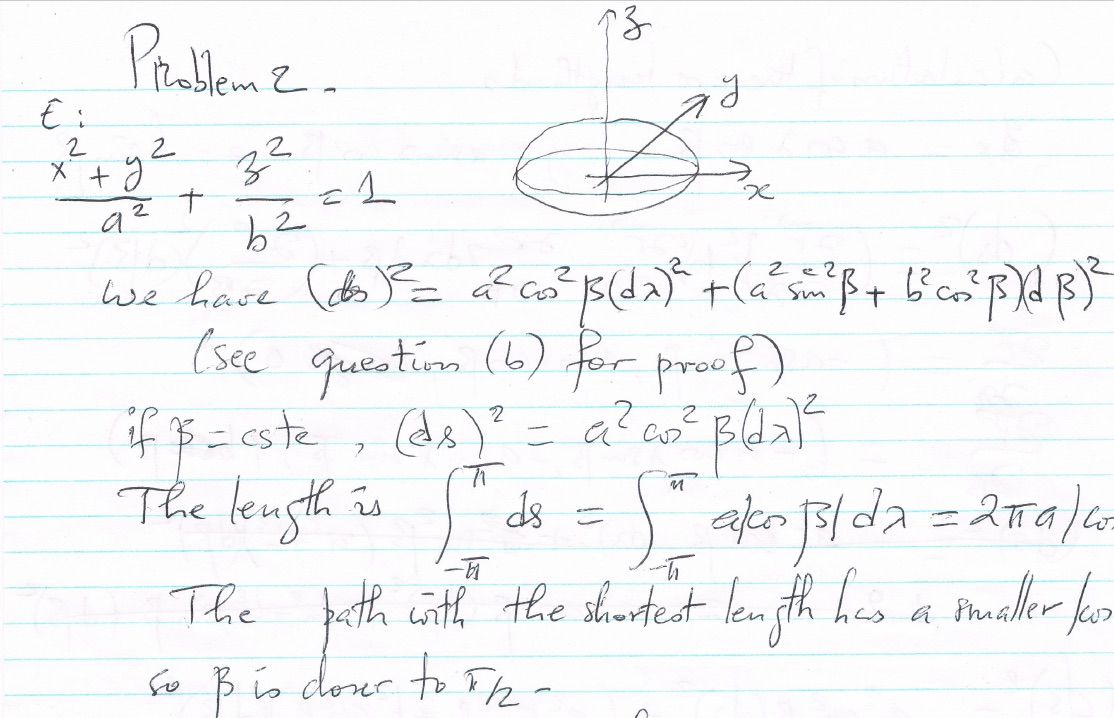 Problem 2 -
z
y
x
E:
(x² + y²)/a² + z²/b² = 1
we have (ds)² = a² cos² β(dλ)² + (a² sin² β + b² cos² β)(dβ)²
(see question (b) for proof)
if β = cste, (ds)² = a² cos² β(dλ)²
The length is ∫_{-π}^{π} ds = ∫_{-π}^{π} a|cos β| dλ = 2πa|cos
The path with the shortest length has a smaller |cos
so β is closer to π/2 -